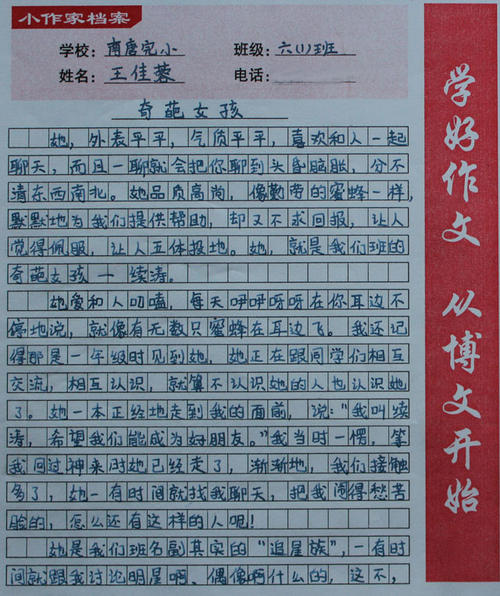 小作家档案
学校：南唐完小 班级：六(1)班
姓名：王佳蓉 电话：
奇葩女孩
她，外表平平，气质平平，喜欢和人一起
聊天，而且一聊就会把你聊到头昏脑胀，分不
清东西南北。她品质高尚，像勤劳的蜜蜂一样，
默默地为我们提供帮助，却又不求回报，让人
觉得佩服，让人五体投地。她，就是我们班的
奇葩女孩—续涛。
她爱和人叨嗑，每天咿咿呀呀在你耳边不
停地说，就像有无数只蜜蜂在耳边飞。我还记
得那是一年级时见到她，她正在跟同学们相互
交流，相互认识，就算不认识她的人也认识她
了。她一本正经地走到我的面前，说：“我叫续
涛，希望我们能成为好朋友。”我当时一愣，等
我回过神来时她已经走了，渐渐地，我们接触
多了，她一有时间就找我聊天，把我闹得愁苦
脸的，怎么还有这样的人呢！
她是我们班名副其实的“追星族”，一有时
间就跟我讨论明星啊、偶像啊什么的，这不，
学好作文 从博文开始